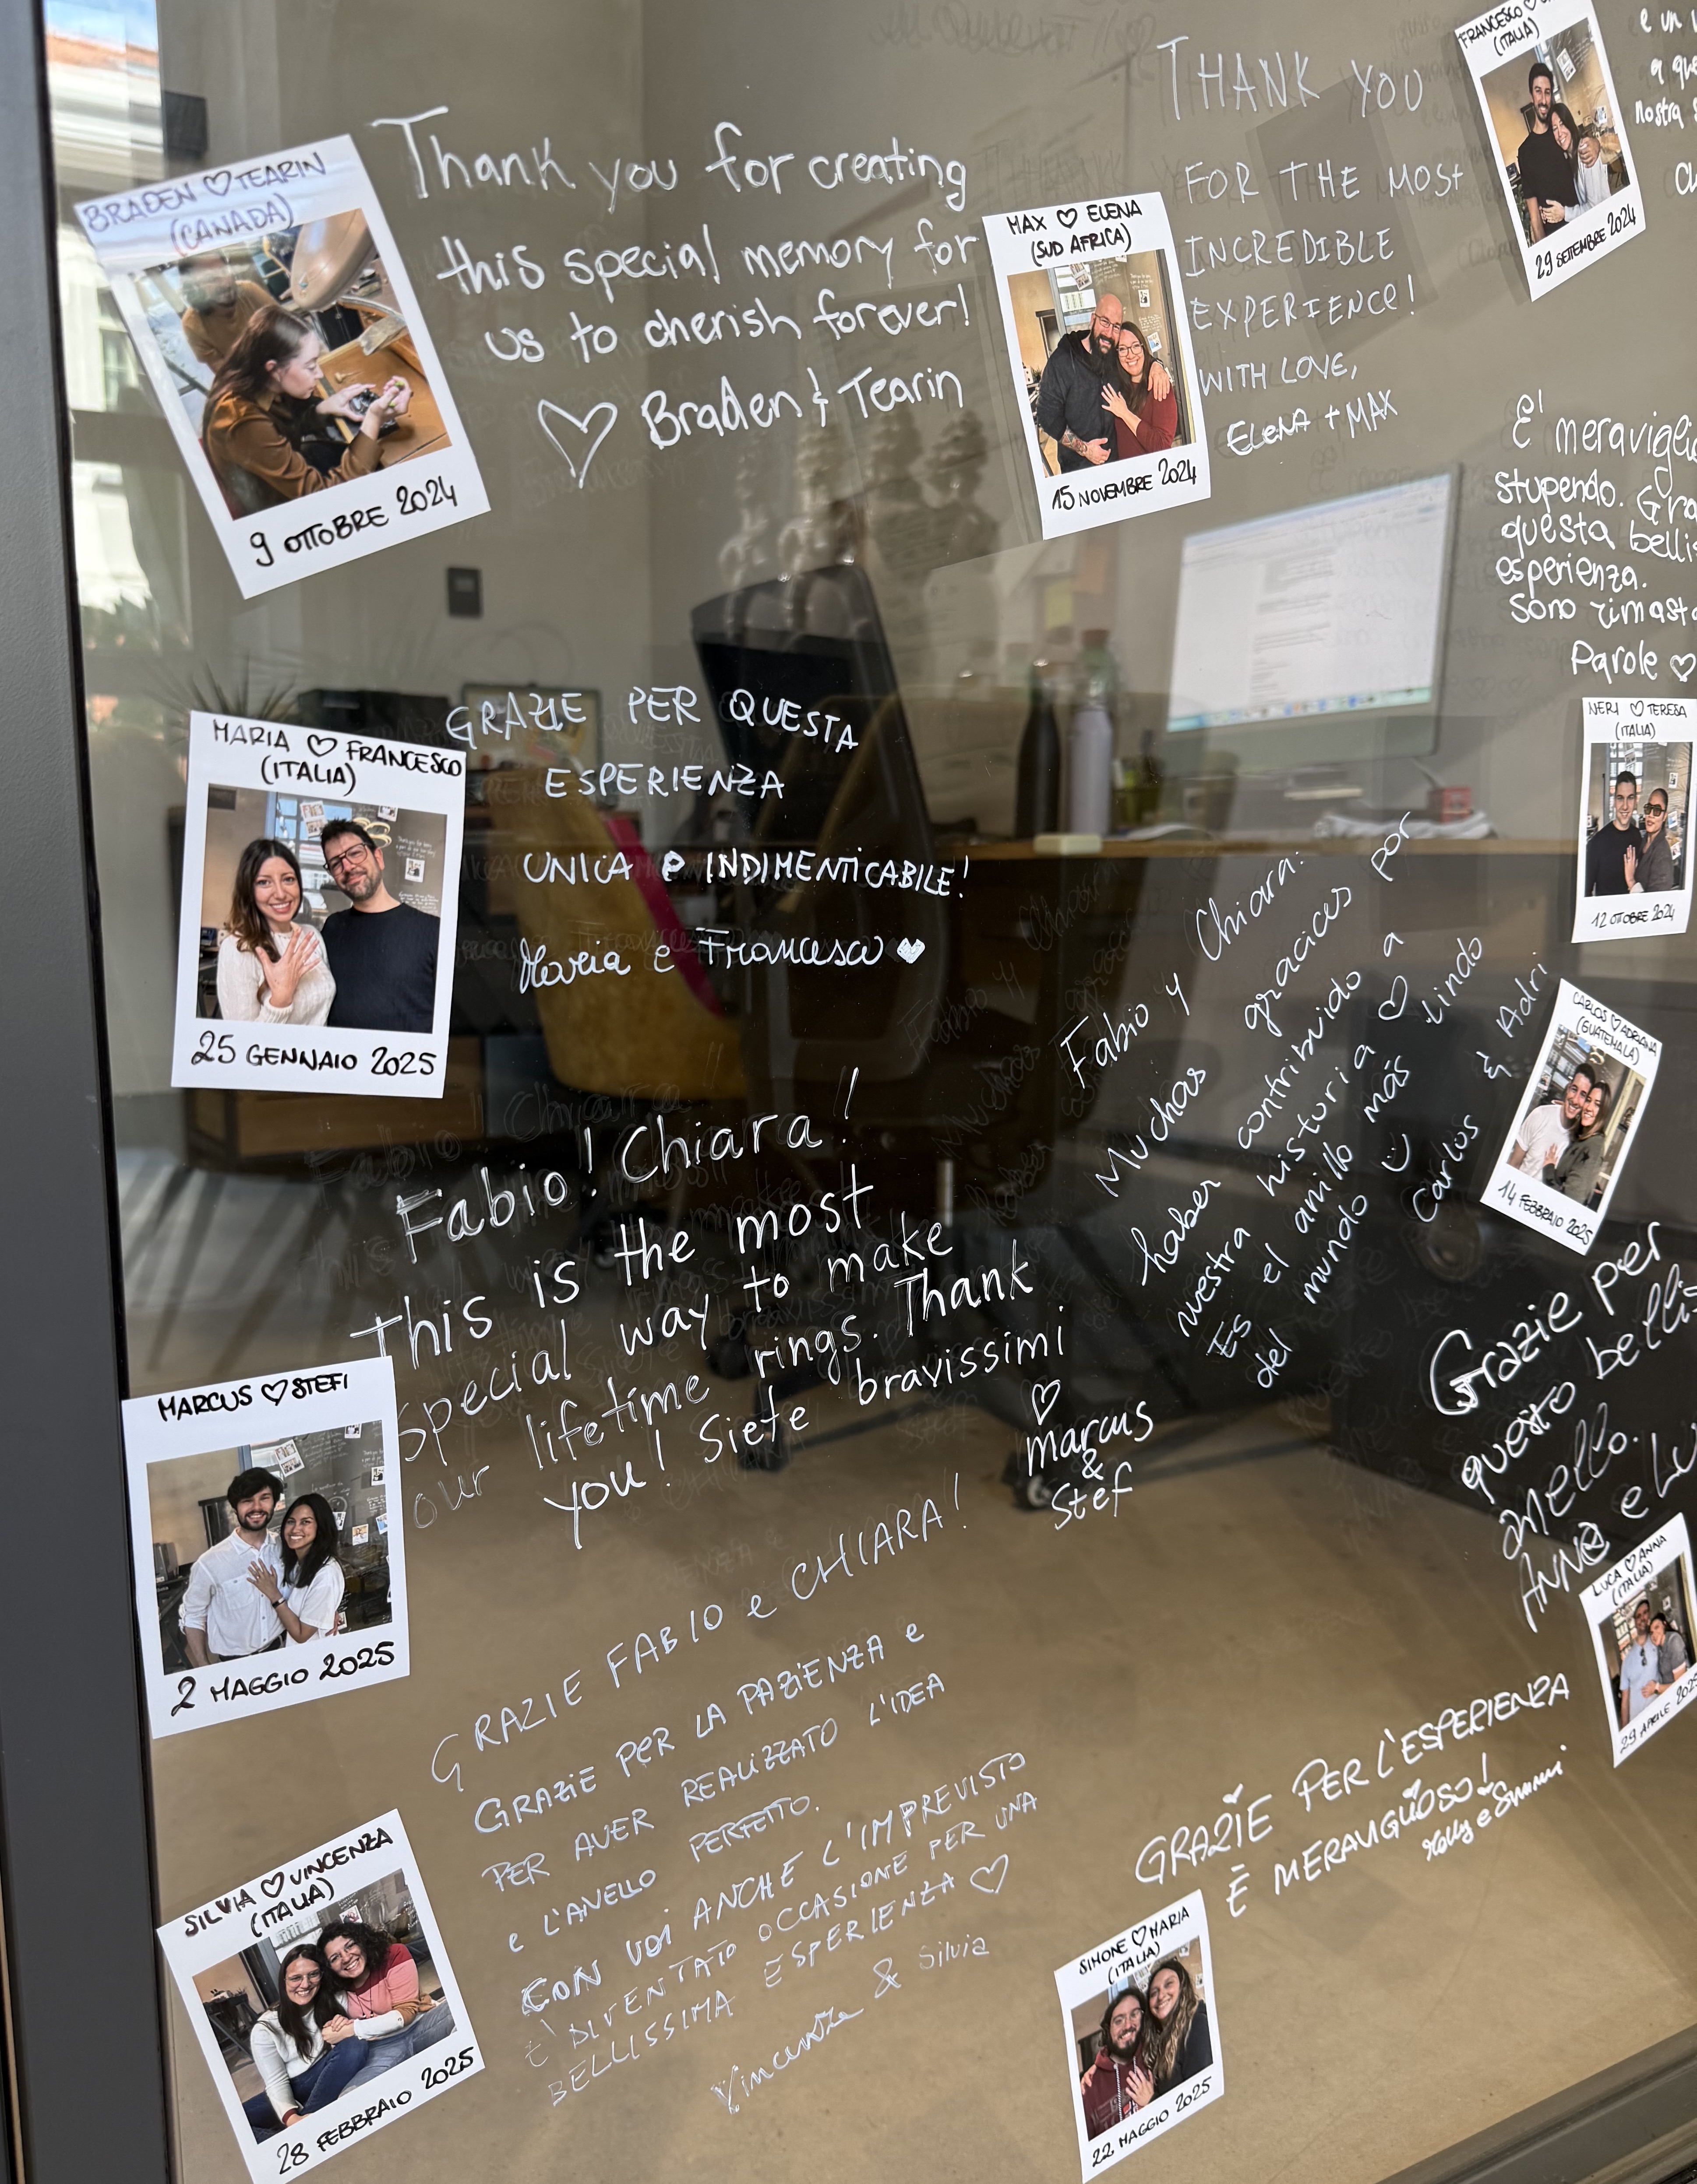 BRADEN ♡ TEARIN
(CANADA)
9 OTTOBRE 2024
Thank you for creating
this special memory for
us to cherish forever!
♡ Braden & Tearin
MAX ♡ ELENA
(SUD AFRICA)
15 NOVEMBRE 2024
THANK YOU
FOR THE MOST
INCREDIBLE
EXPERIENCE!
WITH LOVE,
ELENA + MAX
FRANCESCO ♡
(ITALIA)
29 SETTEMBRE 2024
e un
a que
nostra
E' meravigli
stupendo. Gra
questa bellis
esperienza.
Sono rimast
Parole ♡
NERI ♡ TERESA
(ITALIA)
12 OTTOBRE 2024
MARIA ♡ FRANCESCO
(ITALIA)
25 GENNAIO 2025
GRAZIE PER QUESTA
ESPERIENZA
UNICA e INDIMENTICABILE!
Maria e Francesco ♥
Fabio y Chiara:
Muchas gracias por
haber contribuido a
nuestra historia ♡
Es el anillo más lindo
del mundo
Carlos & Adri
CARLOS ♡ ADRIANA
(GUATEMALA)
14 FEBBRAIO 2025
Fabio! Chiara!
This is the most
special way to make
our lifetime rings. Thank
you! Siete bravissimi
♡
marcus
&
Stef
MARCUS ♡ STEFI
2 MAGGIO 2025
Grazie per
questo bellis
anello.
ANNA e Lu
LUCA ♡ ANNA
(ITALIA)
29 APRILE 2025
GRAZIE FABIO e CHIARA!
GRAZIE PER LA PAZIENZA e
PER AVER REALIZZATO L'IDEA
e L'ANELLO PERFETTO.
CON VOI ANCHE L'IMPREVISTO
E' DIVENTATO OCCASIONE PER UNA
BELLISSIMA ESPERIENZA ♡
Vincenza & Silvia
SILVIA ♡ VINCENZA
(ITALIA)
28 FEBBRAIO 2025
GRAZIE PER L'ESPERIENZA
È MERAVIGLIOSO!
SIMONE ♡ MARIA
(ITALIA)
22 MAGGIO 2025